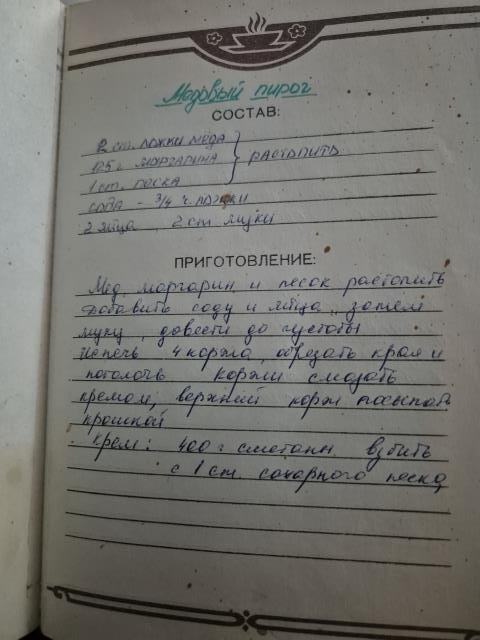 Медовый пирог
СОСТАВ:
2 ст. ложки меда
125 г маргарина } растопить
1 ст. песка
сода - 3/4 ч. ложки
2 яйца, 2 ст муки
ПРИГОТОВЛЕНИЕ:
Мед, маргарин и песок растопить
добавить соду и яйца, затем
муку, довести до густоты
Испечь 4 коржа, обрезать края и
потолочь коржи смазать
кремом, верхний корж посыпать
крошкой
Крем: 400 г сметаны взбить
с 1 ст. сахарного песка